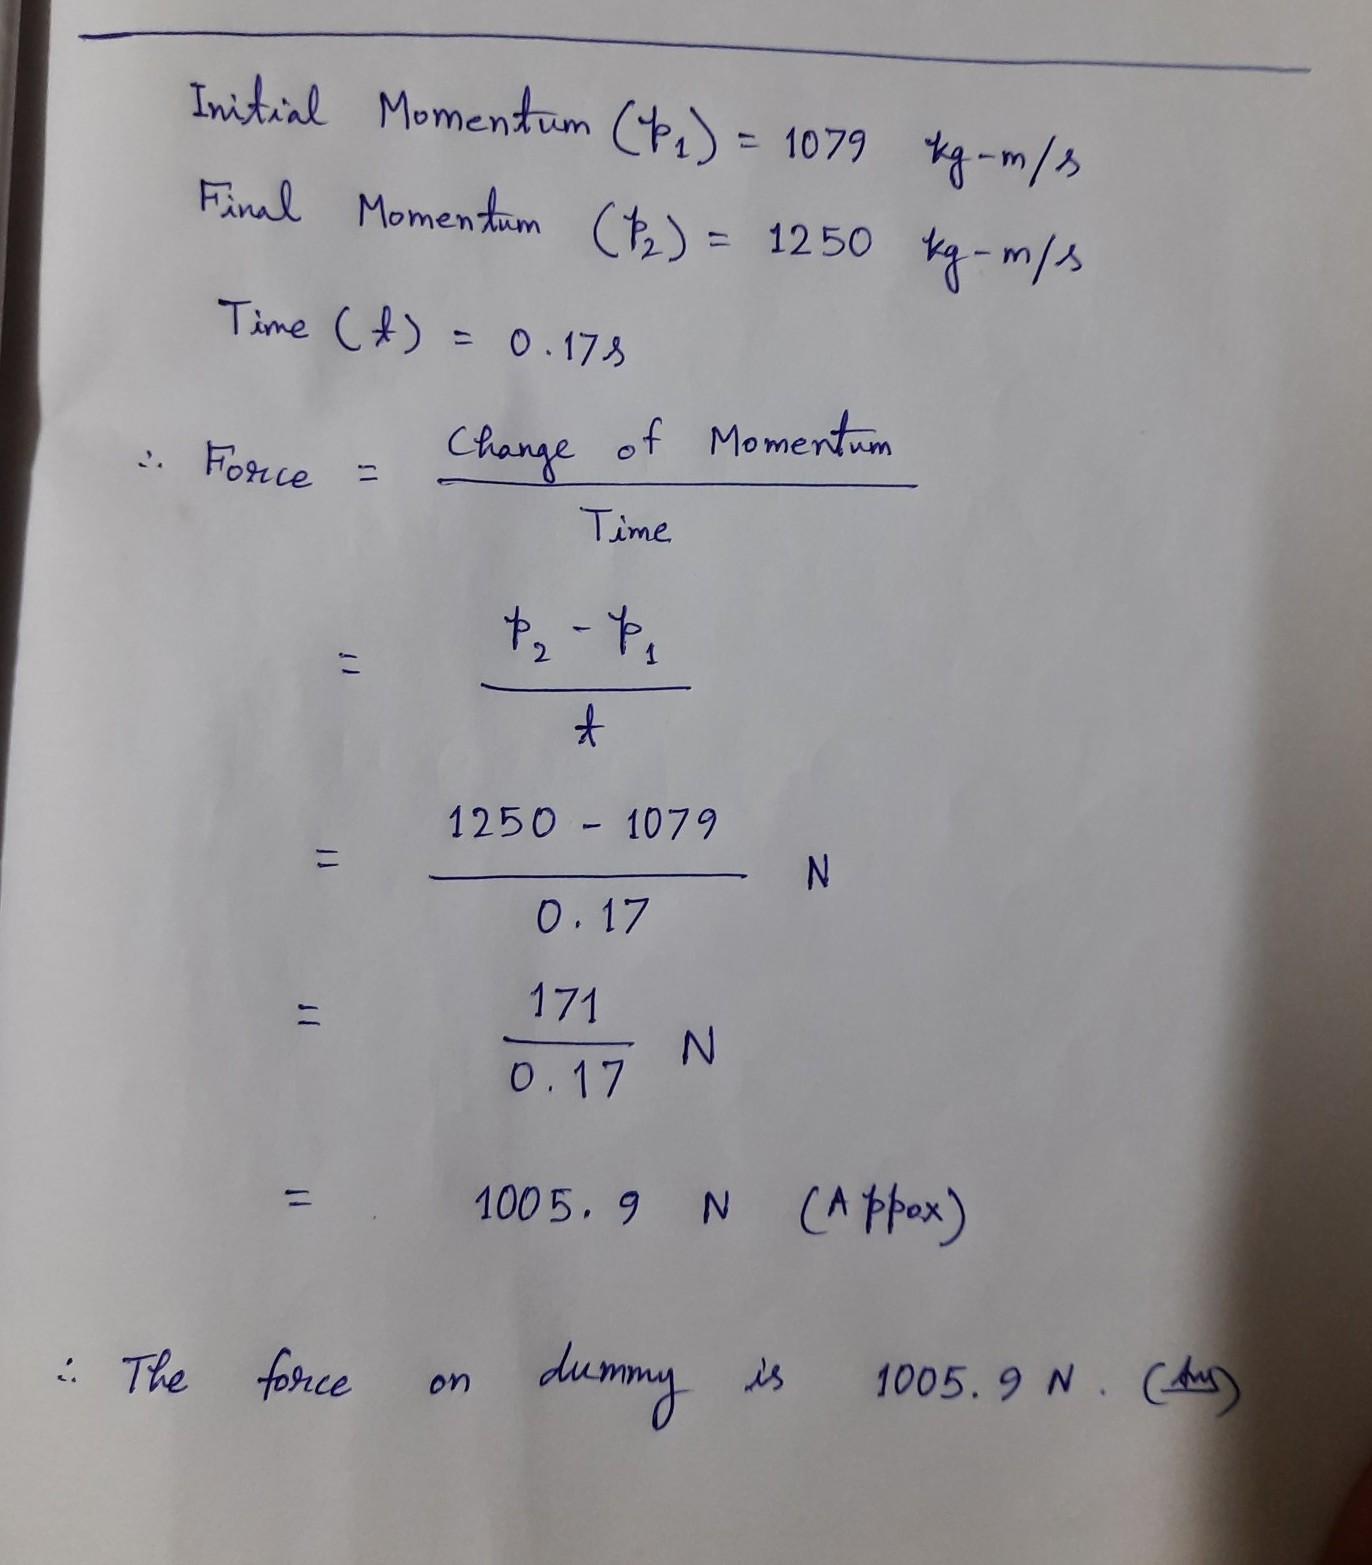 Initial Momentum (p₁) = 1079 kg-m/s
Final Momentum (p₂) = 1250 kg-m/s
Time (t) = 0.17s
∴ Force = Change of Momentum
Time
= p₂ - p₁
t
= 1250 - 1079 N
0.17
= 171 N
0.17
= 1005.9 N (Appox)
∴ The force on dummy is 1005.9 N. (Ans)